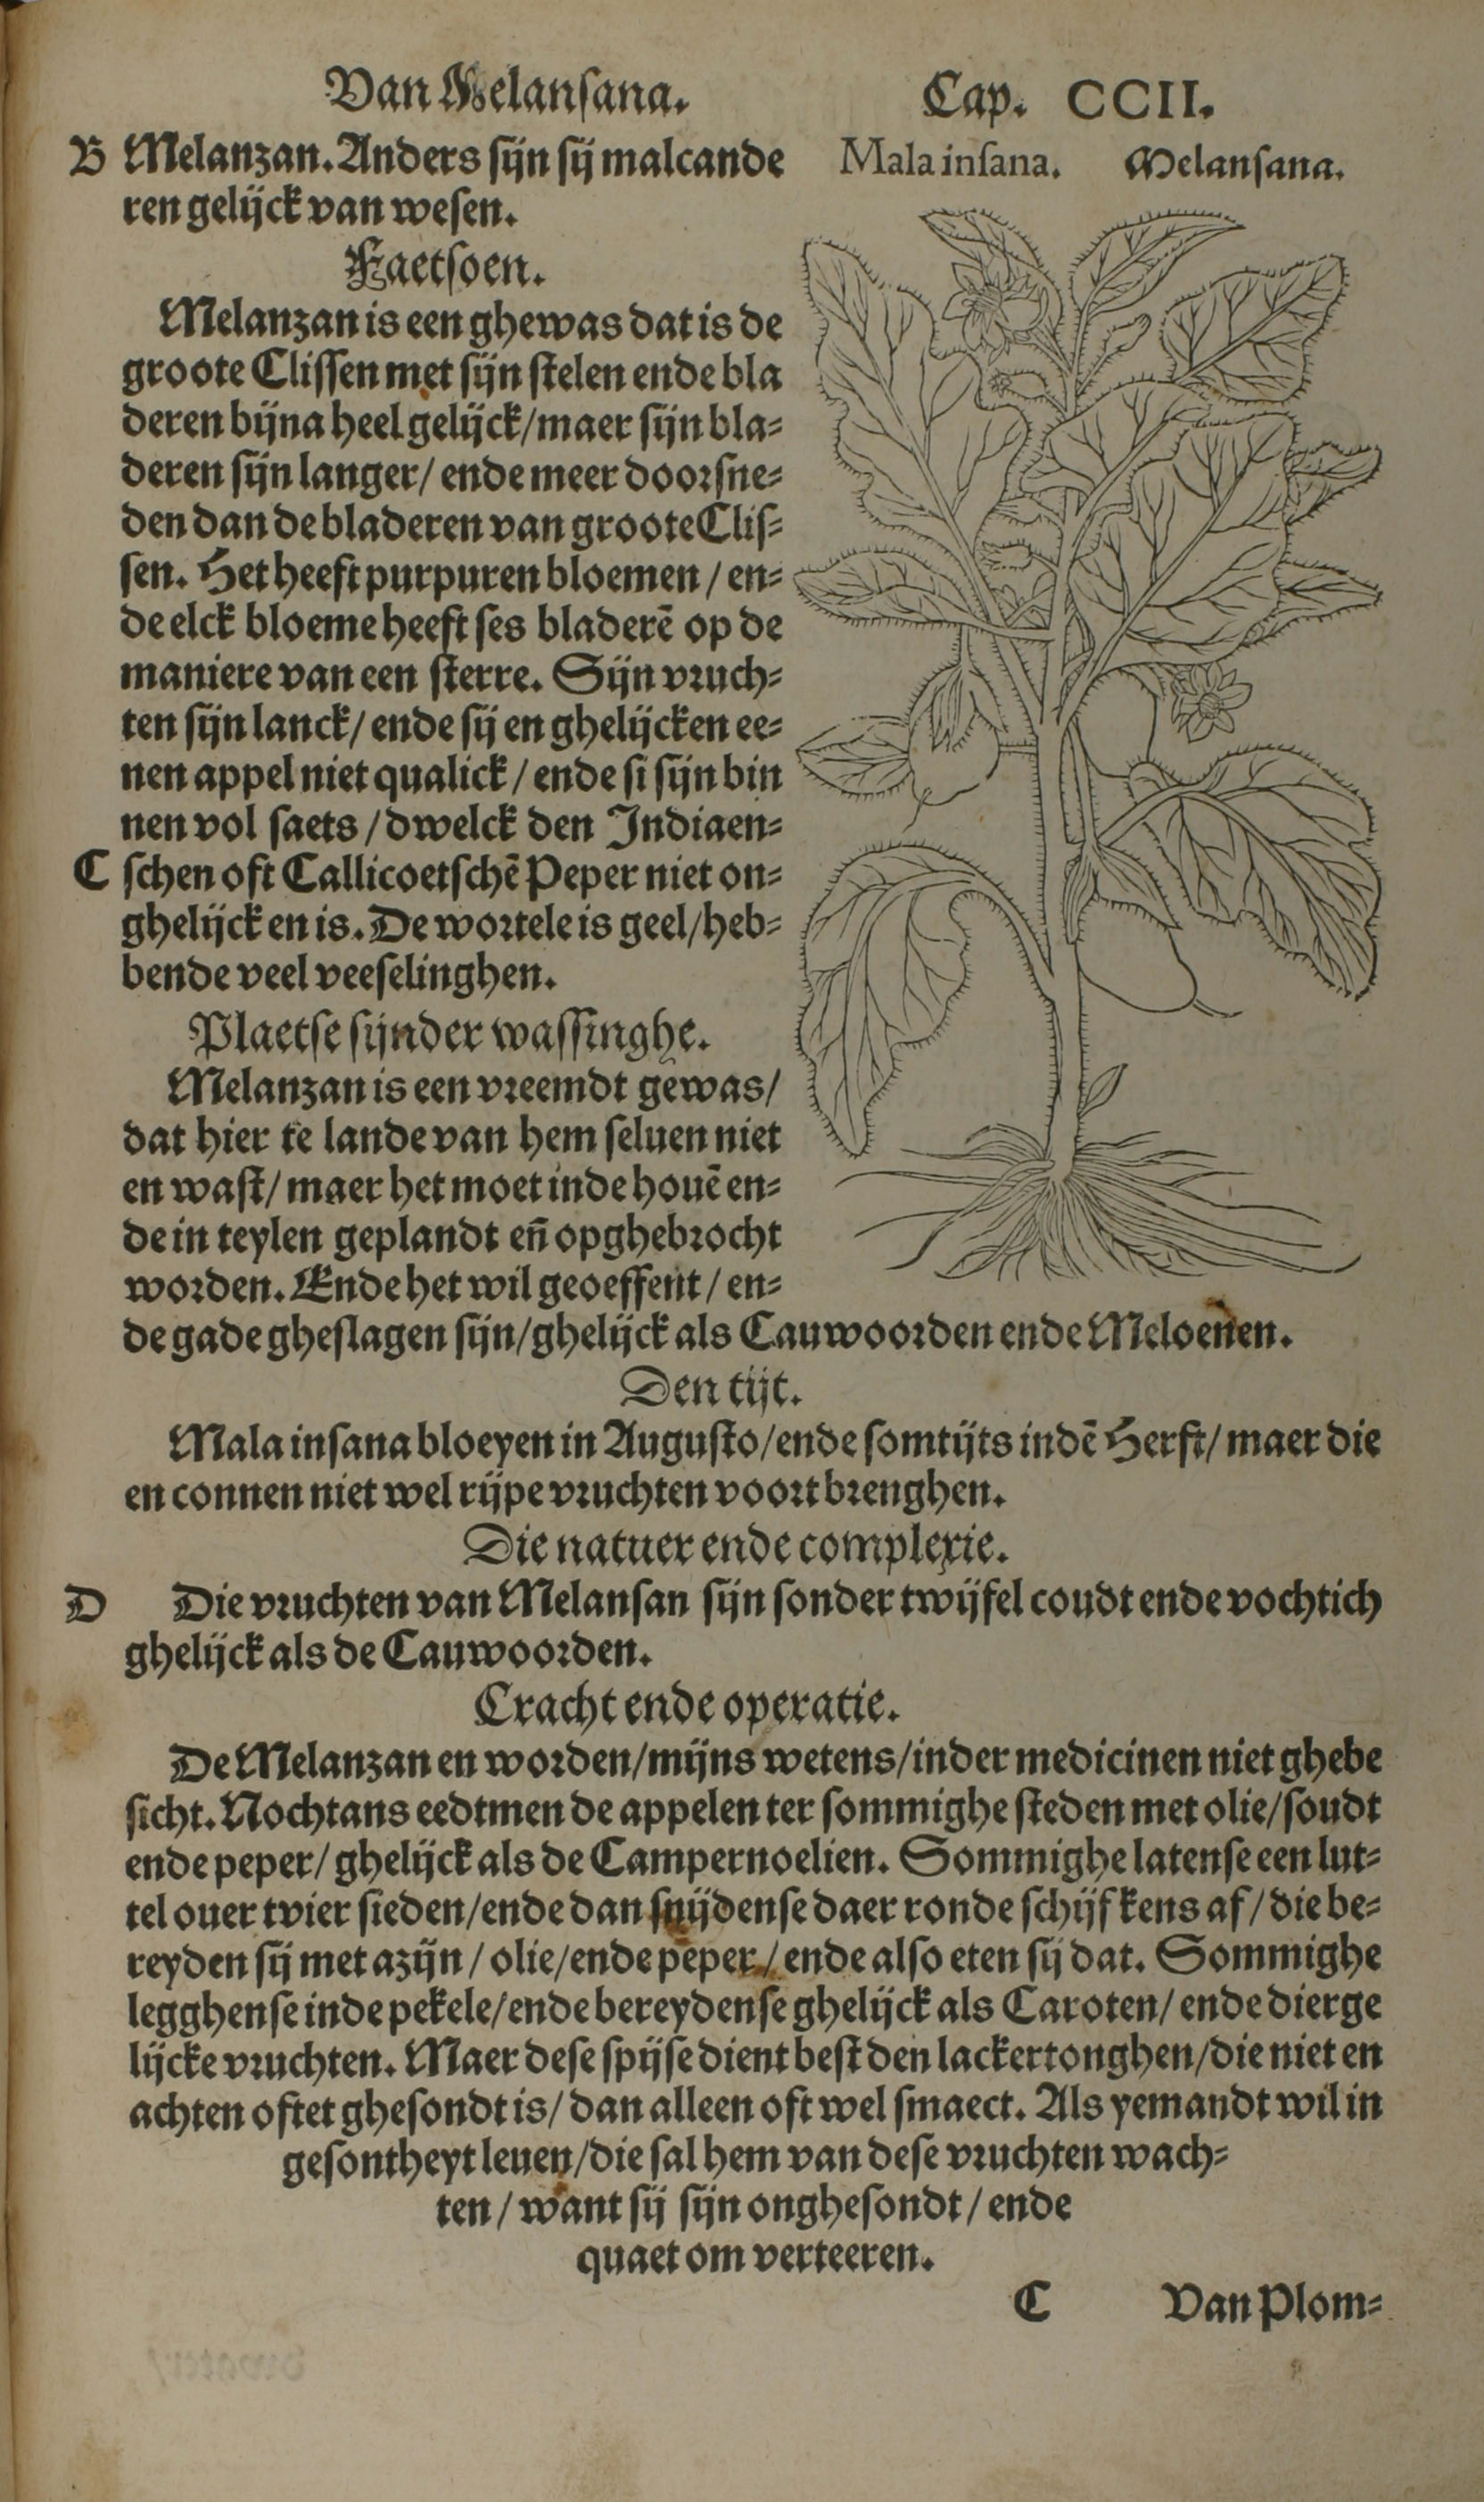 Van Melansana. Cap. CCII.
B Melanzan. Anders sijn sij malcande
ren gelijck van wesen.
Faetsoen.
Melanzan is een ghewas dat is de
groote Clissen met sijn stelen ende bla
deren bijna heel gelijck/maer sijn bla-
deren sijn langer/ ende meer doorsne-
den dan de bladeren van groote Clis-
sen. Het heeft purpuren bloemen / en-
de elck bloeme heeft ses bladerē op de
maniere van een sterre. Sijn vruch-
ten sijn lanck/ ende sij en ghelijcken ee-
nen appel niet qualick / ende si sijn bin
nen vol saets /dwelck den Indiaen-
C schen oft Callicoetschē Peper niet on-
ghelijck en is. De wortele is geel/heb-
bende veel veeselinghen.
Plaetse sijnder wassinghe.
Melanzan is een vreemdt gewas/
dat hier te lande van hem seluen niet
en wast/ maer het moet inde houē en-
de in teylen geplandt eñ opghebrocht
worden. Ende het wil geoeffent / en-
de gade gheslagen sijn/ghelijck als Cauwoorden ende Meloenen.
Mala insana. Melansana.
Den tijt.
Mala insana bloeyen in Augusto/ende somtijts indē Herfst/ maer die
en connen niet wel rijpe vruchten voortbrenghen.
Die natuer ende complexie.
D Die vruchten van Melansan sijn sonder twijfel coudt ende vochtich
ghelijck als de Cauwoorden.
Cracht ende operatie.
De Melanzan en worden/mijns wetens/inder medicinen niet ghebe
sicht. Nochtans eedtmen de appelen ter sommighe steden met olie/soudt
ende peper/ ghelijck als de Campernoelien. Sommighe latense een lut-
tel ouer tvier sieden/ende dan snijdense daer ronde schijfkens af/ die be-
reyden sij met azijn / olie/ende peper / ende also eten sij dat. Sommighe
legghense inde pekele/ende bereydense ghelijck als Caroten/ ende dierge
lijcke vruchten. Maer dese spijse dient best den lackertonghen/die niet en
achten oftet ghesondt is/ dan alleen oft wel smaect. Als yemandt wil in
gesontheyt leuen/die sal hem van dese vruchten wach-
ten / want sij sijn onghesondt / ende
quaet om verteeren.
C Van Plom-